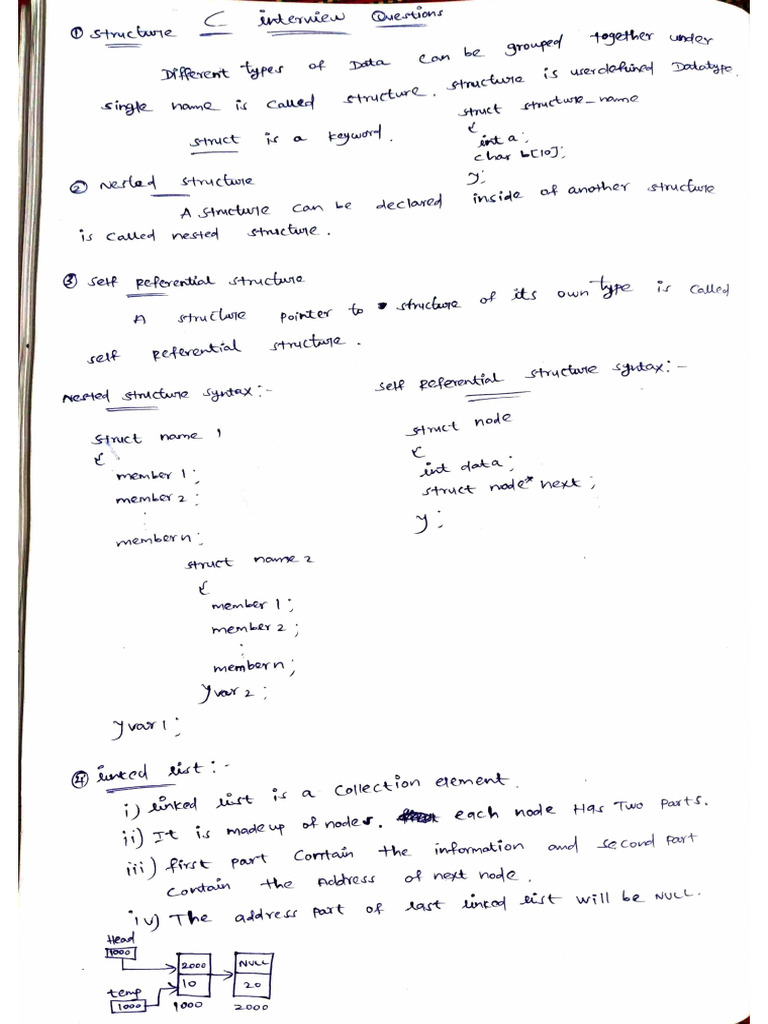 C interview Questions
① Structure
Different types of Data can be grouped together under
single name is called structure. structure is userdefined Datatype.
struct is a keyword.
struct structure_name
{
int a;
char b[10];
};
② Nested structure
A structure can be declared inside of another structure
is called nested structure.
③ Self Referential structure
A structure pointer to structure of its own type is called
self referential structure.
Nested structure syntax:-
struct name 1
{
member 1;
member 2;
:
member n;
struct name 2
{
member 1;
member 2;
:
member n;
} var 2;
} var 1;
self Referential structure syntax:-
struct node
{
int data;
struct node* next;
};
④ linked list:-
i) linked list is a collection element.
ii) It is madeup of nodes. each node Has Two parts.
iii) first part Contain the information and second part
contain the Address of next node.
iv) The address part of last linked list will be NULL.
Head
1000
2000 NULL
10 20
temp
1000
1000 2000